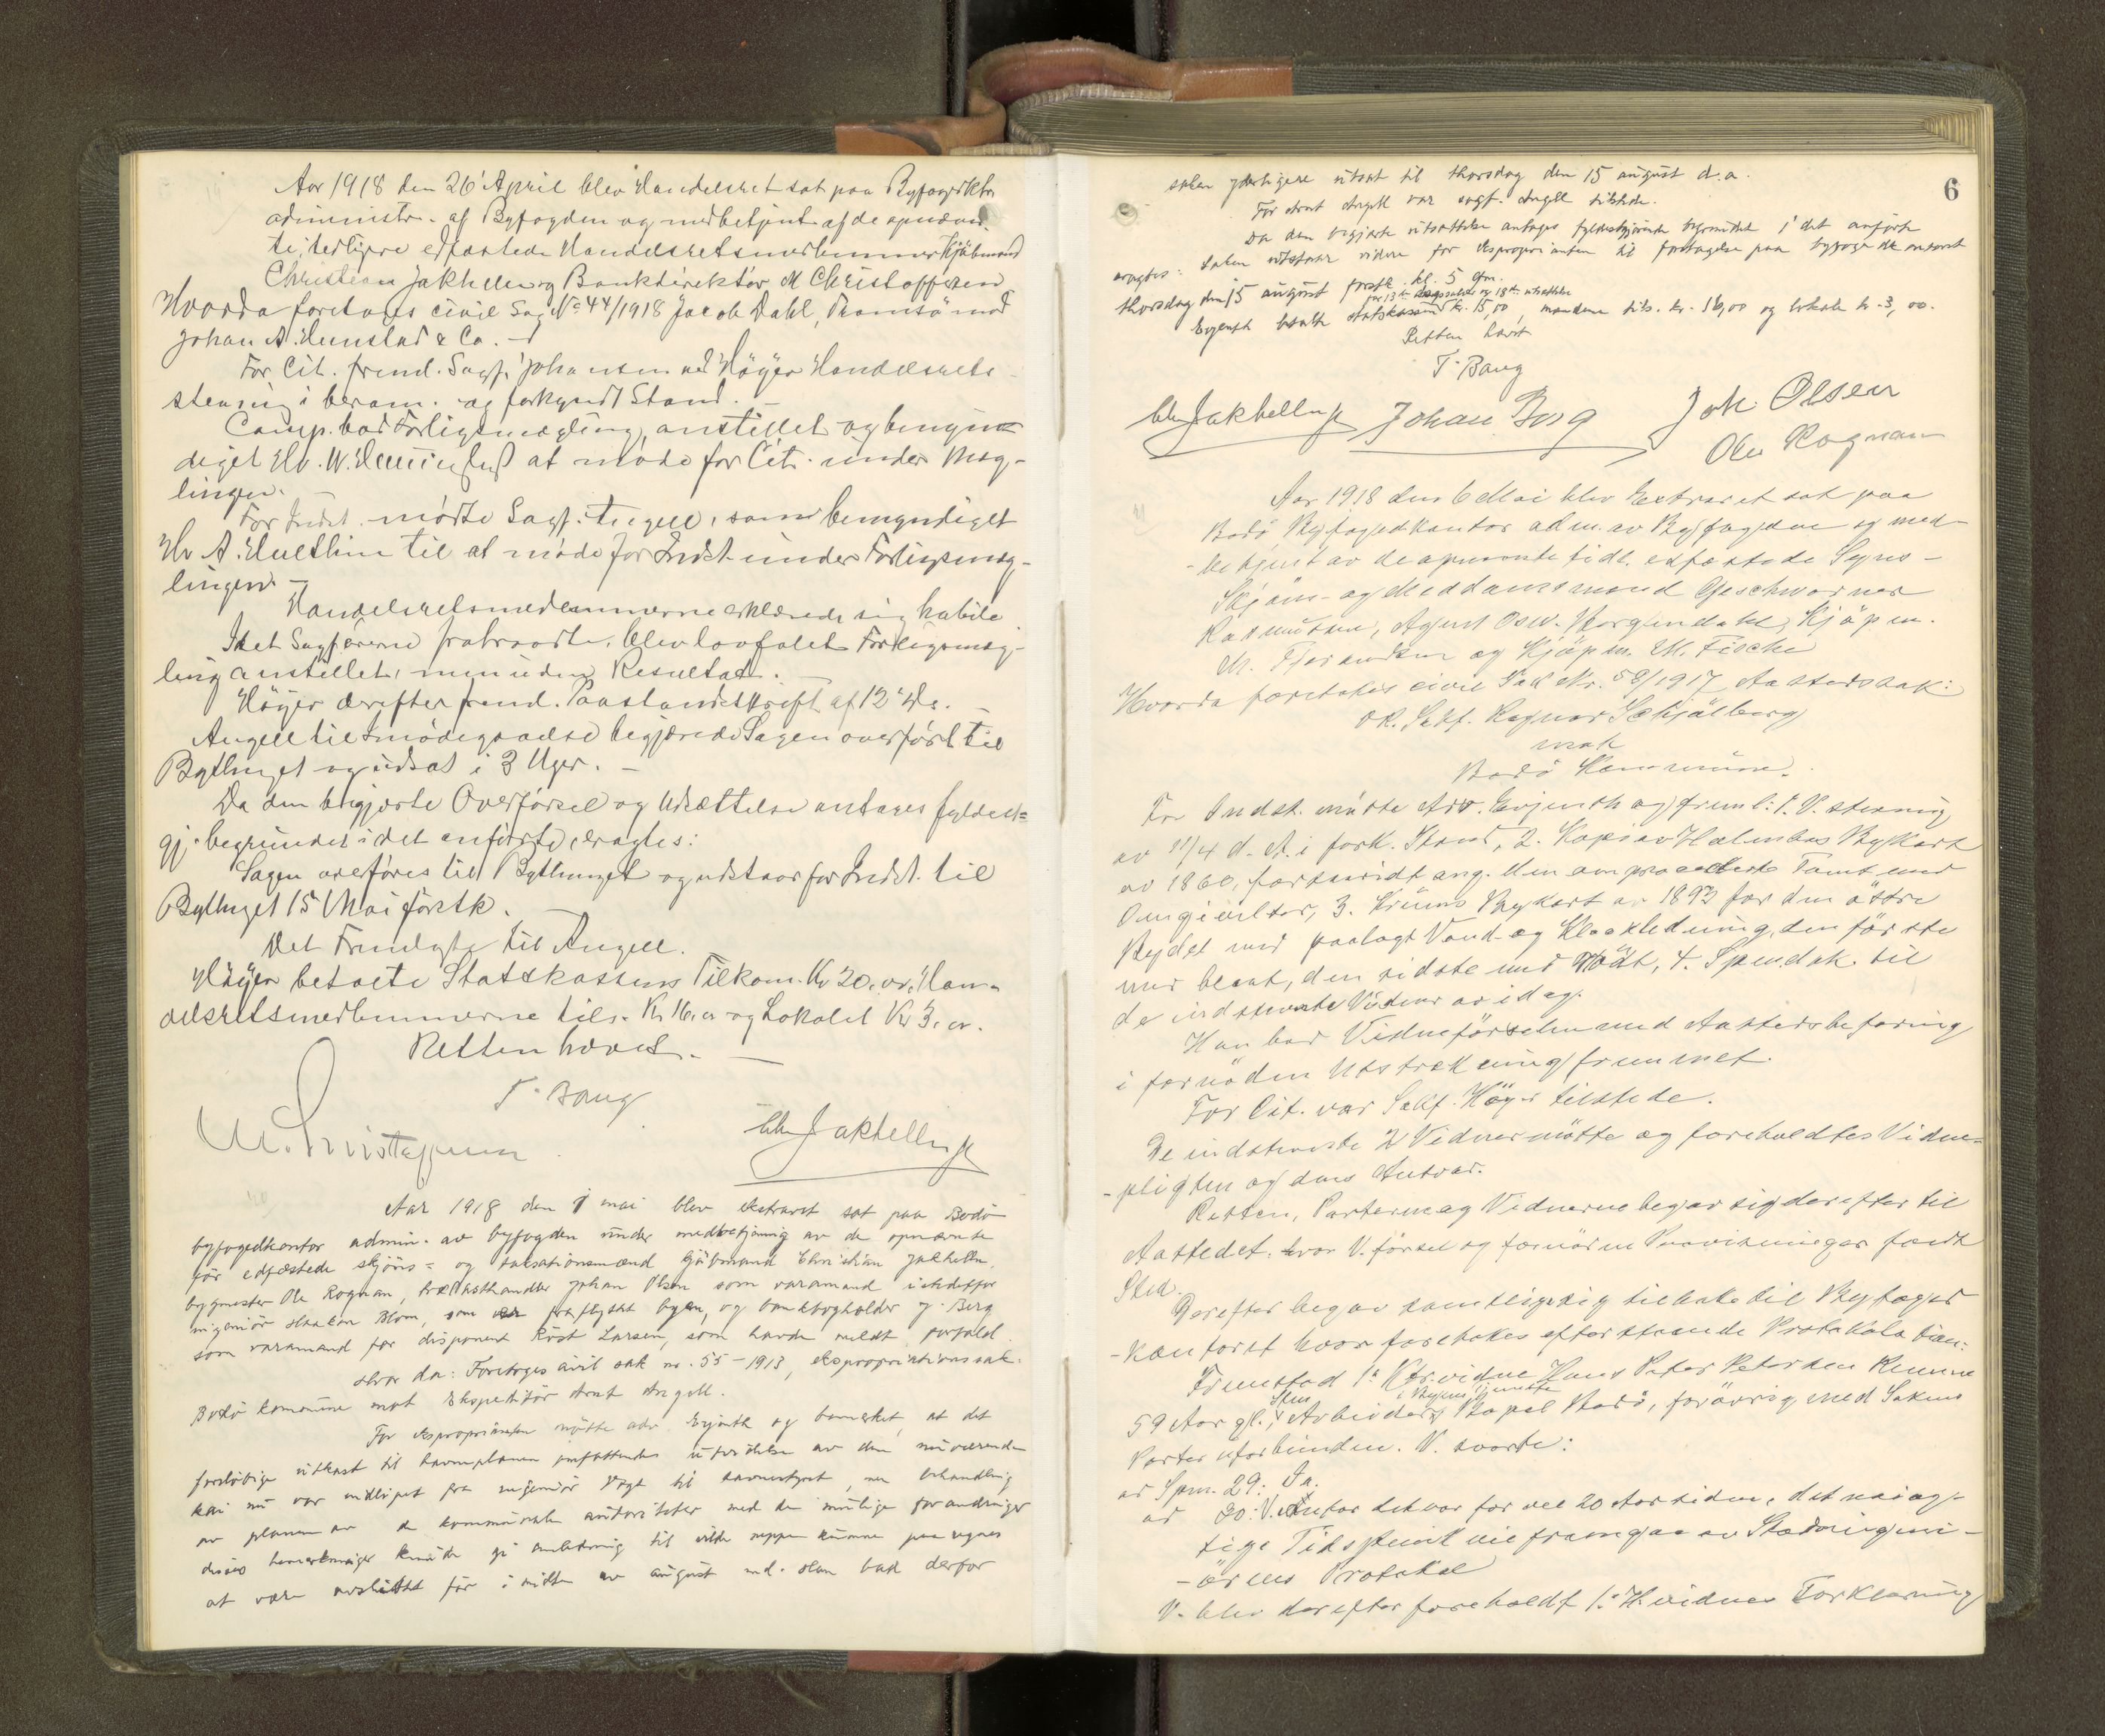 Aar 1918 den 26' April blev Handelsret sat paa Byfogdktr
administr. af Byfogden og medbetjent af de opnævn-
te, tidligere edfæstede Handelsretsmedlemmer Kjöbmand
Christian Jakhelln og Bankdirektör M Christoffersen
Hvorda foretoges civil Sag No 44/1918 Jacob Dahl, Tromsö mod
Johan A. Hunstad & Co. —
For Cit. freml. Sagf. Johansen ved Höyer Handelsrets-
stevning i beram. og forkyndt Stand. —
Comp. bad Forligsmægling anstillet og bemyn-
diget Hr. W. at möde for Cit. under Mæg-
lingen.
For Indst. mödte Sagf. Angell, som bemyndiget
Hr A. til at möde for Indst under Forligsmæg-
lingen. —
Handelsretsmedlemmerne erklærede sig habile
Idet Sagförerne fratraadte, blev lovbefalet Forligsmæg-
ling anstillet, men uden Resultat. —
Höyer derefter freml. Paastandsskrift af 12 ds. —
Angell til Imödegaaelse begjærede Sagen overfört til
Bythinget og udsat i 3 Uger. —
Da den begjærte Overförsel og Udsættelse antages fyldest-
gj. begrundet i det anförte, eragtes:
Sagen overföres til Bythinget og udstaar for Indst. til
Bythinget 15 Mai förstk. —
Det Fremlagte til Angell.
Höyer betalte Statskassens Tilkom. Kr 20,00, Han-
delsretsmedlemmerne tils. Kr 16,00 og Lokalet Kr 3,00.
Retten hævet. —
T. Bang
M. Christoffersen Chr Jakhelln jr
Aar 1918 den 1 mai blev ekstraret sat paa Bodö
byfogedkontor admin. av byfogden under medbetjening av de opnævnte
för edfæstede skjöns- og taksationsmænd kjöbmand Christian Jakhelln,
bygmester Ole Rognan, trælasthandler Johan Olsen som varamand istedetfor
ingeniör Haakon Blom, som er fraflyttet byen, og bankbogholder J. Berg
som varamand for disponent Röst Larsen, som havde meldt forfald.
Hvor da: Foretoges civil sak nr. 55-1913, ekspropriationssak:
Bodö kommune mot Ekspeditör Arnt Angell.
For eksproprianten mötte adv. Evjenth og bemerket, at det
forelöbige utkast til havneplanen omfattende utvidelse av den nuværende
kai nu var indlöpet fra ingeniör Vogt til havnestyret, men behandling
av planen av de kommunale autoriteter med de mulige forandringer
disses bemerkninger kunde gi anledning til vilde neppe kunne paaregnes
at være avsluttet för i midten av august md. Han bad derfor
6
saken yderligere utsat til thorsdag den 15 august d.a.
For Arnt Angell var sagf. Angell tilstede.
Da den begjærte utsættelse antages fyldestgjörende begrundet i det anförte
eragtes: Saken utstaar videre for eksproprianten til foretagelse paa byfogedkontoret
thorsdag den 15 august förstk. kl. 5 em.
for 13de og 18de utsættelse
Evjenth betalte statskassen kr. 15,00, mændene tils. kr. 16,00 og lokale kr. 3,00.
Retten hævet
T. Bang
Chr Jakhelln jr Johan Berg Joh. Olsen
Ole Rognan
Aar 1918 den 6 Mai blev Extraret sat paa
Bodö Byfogedkontor adm. av Byfogden og med-
-betjent av de opnævnte tidl. edfæstede Syns-
Skjöns- og Meddomsmænd Geschworner
Rasmussen, Agent Osw. Horgendahl, Kjöpm.
M. og Kjöpm. M. Fische
Hvorda foretokes civil Sak Nr. 58/1917 Aastedssak:
OR. Sakf. Ragnar Schjölberg
mot
Bodö Kommune.
For Indst. mötte Adv. Evjenth og freml: 1. V. stevning
av 11/4 d. A. i fork. Stand, 2. Kopi av Holmboes Bykart
av 1860, forsaavidt ang. den omprocederte Tomt med
Omgivelser, 3. Krums Bykart av 1893 for den östre
Bydel med paalagt Vand- og Kloakledning, den förste
med blaat, den sidste med rödt, 4. Spm.dok. til
de indstevnte Vidner av idag.
Han bad Vidneförselen med Aastedsbefaring
i fornöden Utstrækning fremmet.
For Cit. var Sakf. Höyer tilstede.
De indstevnte 2 Vidner mötte og foreholdtes Vidne-
-pligten og dens Ansvar.
Retten, Parterne og Vidnerne begav sig derefter til
Aastedet, hvor V. försel og fornödne Paavisninger fandt
Sted.
Derefter begav samtlige sig tilbake til Byfoged
-kontoret hvor foretokes efterstaaende Protokollation:
Fremstod 1. Ktr.vidne Hans Peter Petersen
59 Aar gl., Arbeider Bopæl Bodö, forövrig med Sakens
i Byens tjeneste
Parter uforbunden. V. svarte:
ad Spm. 29: Ja.
ad 30: V. antar det var for vel 20 Aar siden, det nöiag-
tige Tidspunkt vil fremgaa av Stadsingeni-
-örens Protokol
V. blev derefter foreholdt 1. H.vidnes Forklaring